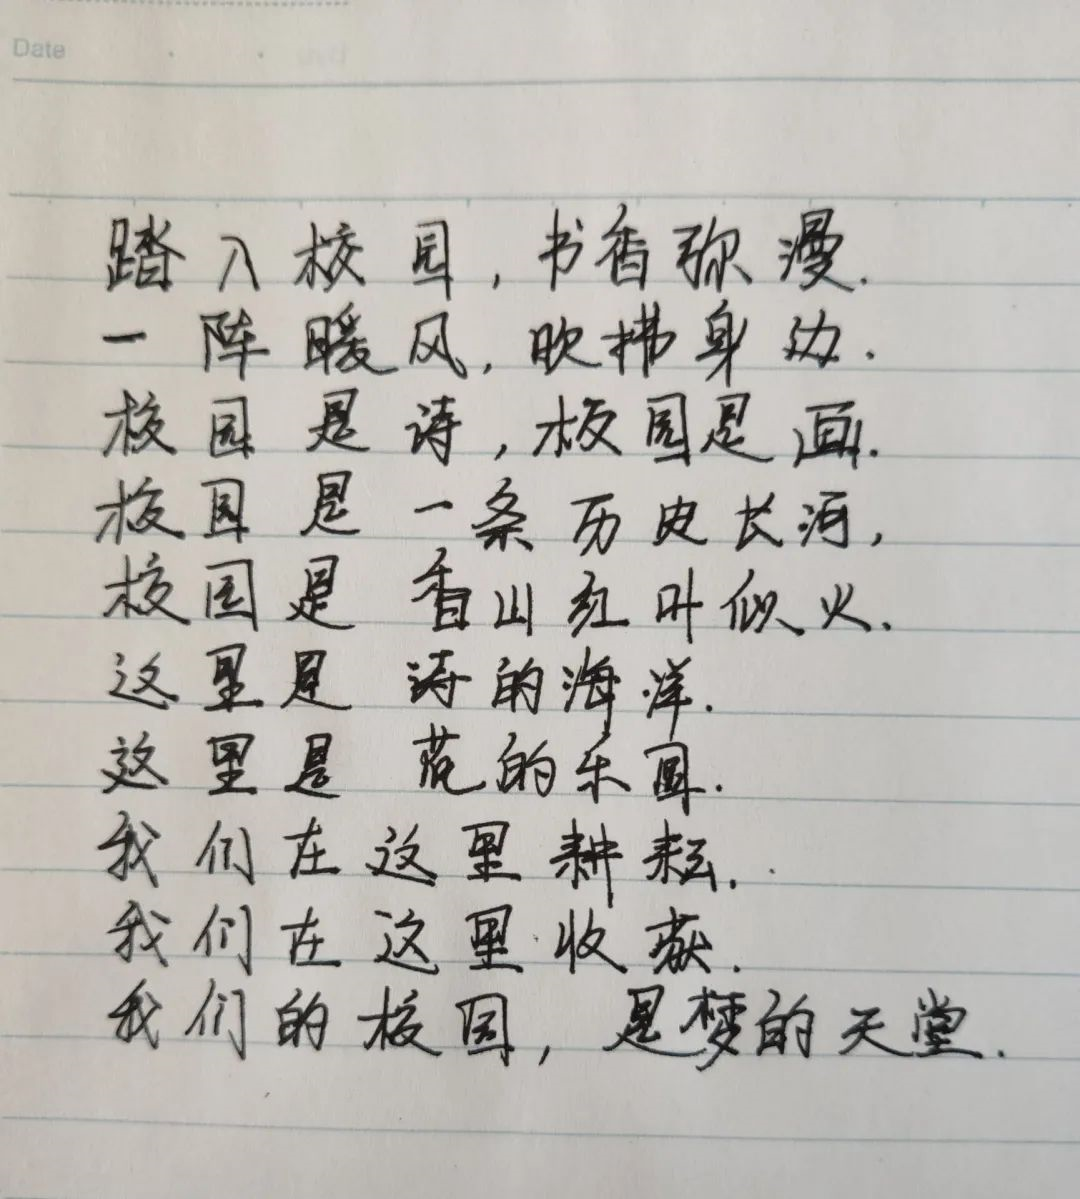 Date
踏入校园,书香弥漫.
一阵暖风,吹拂身边.
校园是诗,校园是画.
校园是一条历史长河,
校园是香山红叶似火.
这里是诗的海洋.
这里是花的乐园.
我们在这里耕耘.
我们在这里收获.
我们的校园,是梦的天堂.